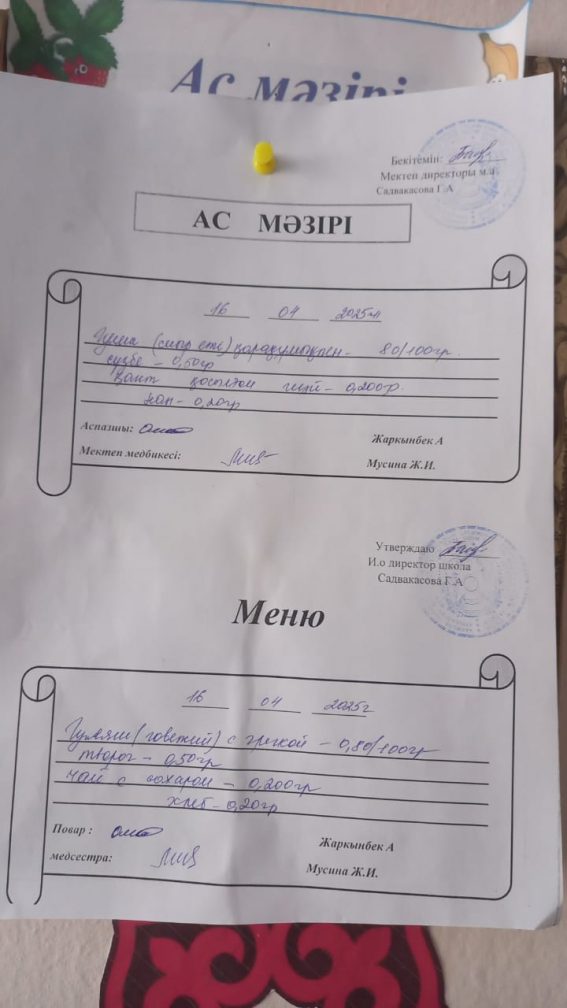 Ас мәзірі
Бекітемін:
Мектеп директоры м.а
Садвакасова Г.А
АС МӘЗІРІ
16 04 2025ж
Гуляш (сиыр еті) қарақұмықпен - 80/100гр.
сүзбе - 0,50гр
қант қосылған шәй - 0,200гр.
нан - 0,20гр
Аспазшы:
Жаркынбек А
Мектеп медбикесі:
Мусина Ж.И.
Утверждаю
И.о директор школа
Садвакасова Г.А
Меню
16 04 2025г
Гуляш (говежий) с гречкой - 0,80/100гр
творог - 0,50гр
чай с сахаром - 0,200гр
хлеб - 0,20гр
Повар :
Жаркынбек А
медсестра:
Мусина Ж.И.